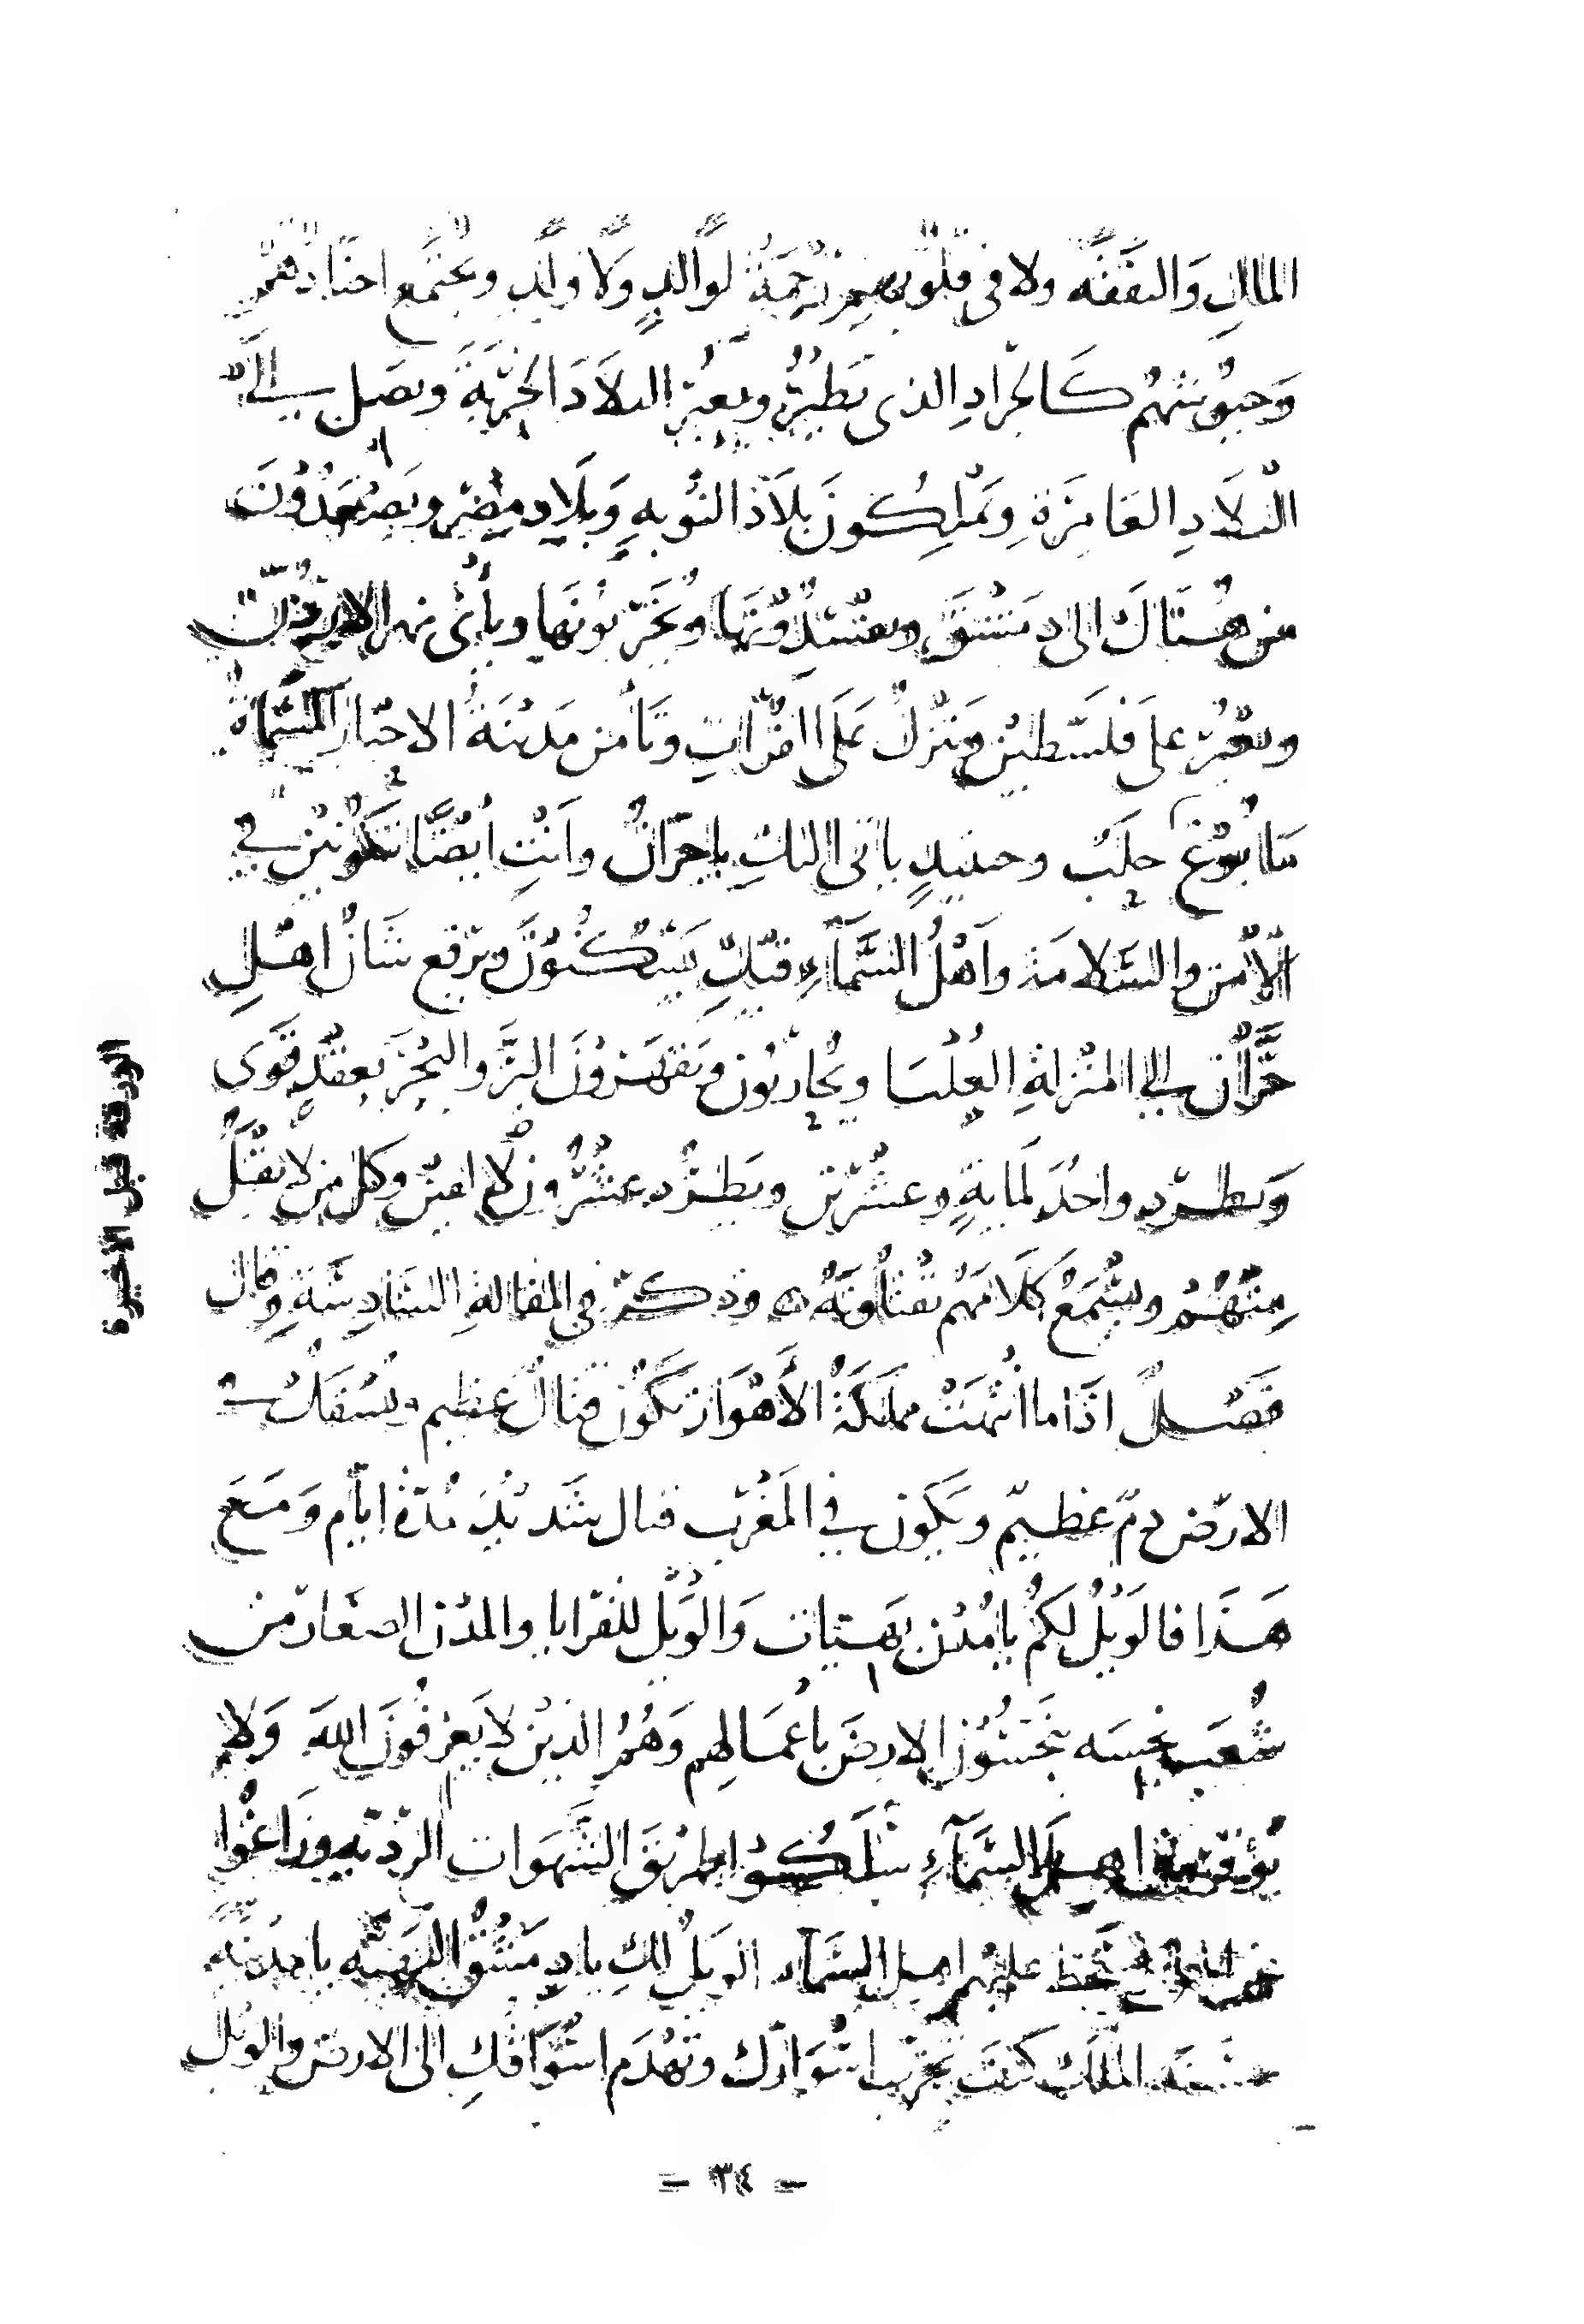 المال والنفقه ولا فى قلوبهم رحمة لوالدٍ ولا ولدٍ وتجتمع اجنادهم
وجيوشهم كالجراد الذى يطير ويعبر البلاد الخربة ويصل الى
البلاد العامرة ويملكون بلاد النوبه وبلاد مصر ويصعدون
من هناك الى دمشق ويفسدونها ويخربونها ويأتى نهر الاردن
ويعبر على فلسطين وينزل على الفرات وتأمن مدينة الاحبار المسماة
مابوغ حلب وحينيذٍ ياتى اليك ياحران وانتِ ايضًا تكونين فى
الأمن والسلامة واهل السمآءِ فيكِ يسكنون ويرفع شان اهل
حَرّان الى المنزلة العُليا ويحاربون ويقهرون البر والبحر بعقدٍ قوى
ويطرد واحد لمايةٍ وعشرين ويطرد عشرون لالفين وكل من لا يقبل
منهم ويسمع كلامهم يقتلونه وذكر فى المقالة السادسة وقال
فصل اذا ما انتهت مملكة الأهواز تكون قتال عظيم ويسفك فى
الارض دم عظيم ويكون فى المغرب قتال شديد مدة ايام ومع
هذا فالويل لكم يامدن بهيات والويل للقرايا والمدن الصغار من
شعب نجسه ينجسون الارض باعمالهم وهم الذين لا يعرفون الله ولا
السمآءِ سلكوا طريق الشهوات الرديه وزاغوا
عليهم اهل السمآء الويل لكِ يا دمشق البهيه يا مدينة
الملك كيف تخرب اسوارك وتهدم اسواقكِ الى الارض والويل
- ٣٤ -
الورقة قبل الأخيرة